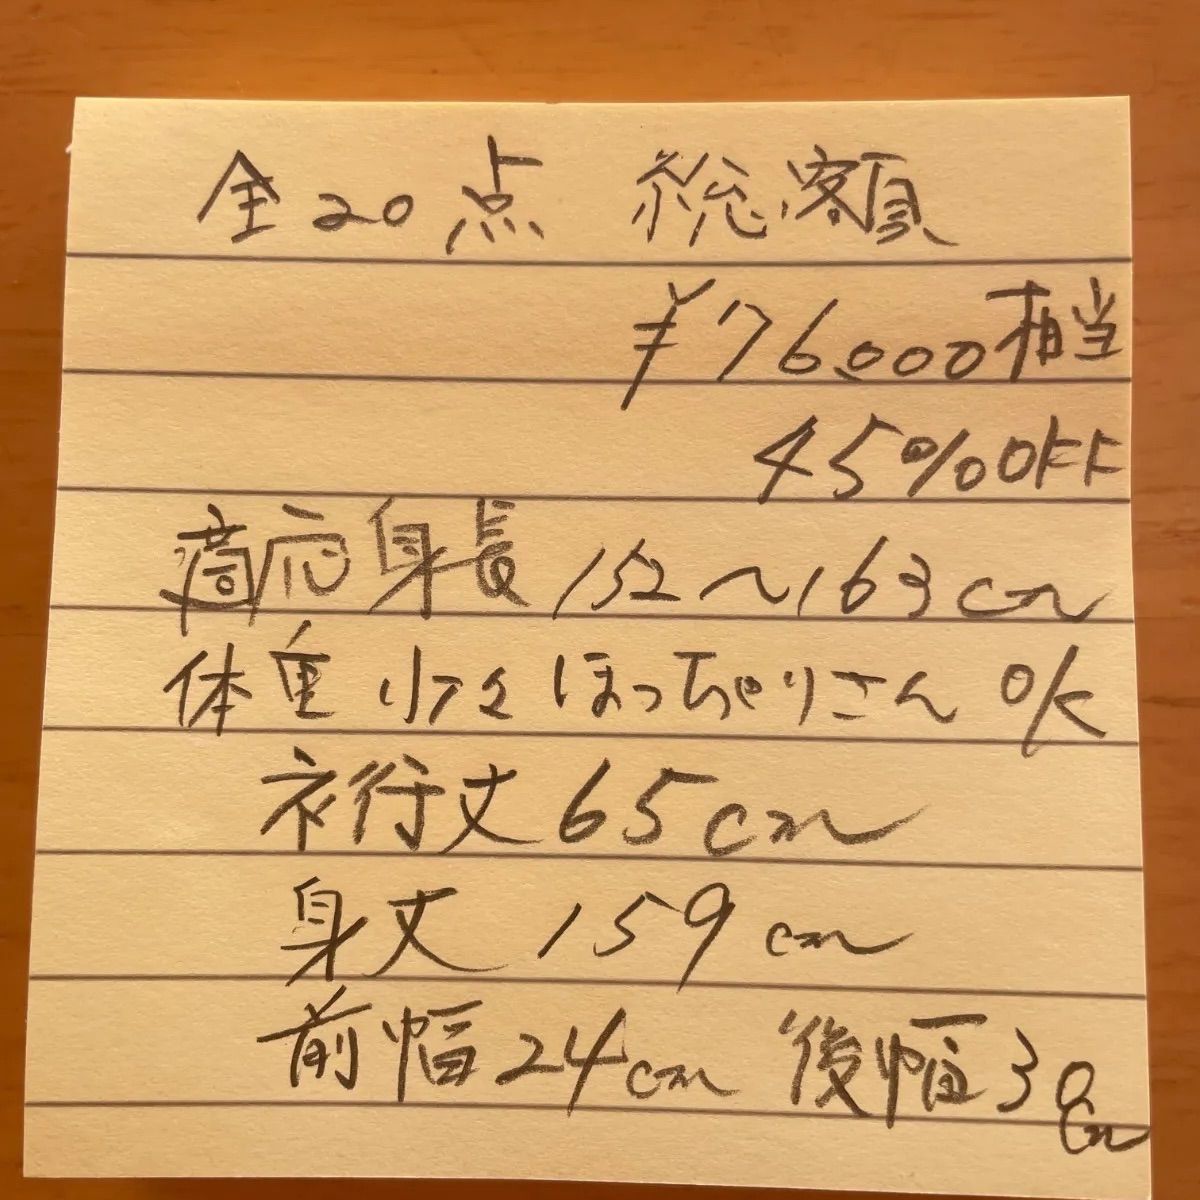 全20点 総額
¥76.000相当
45%OFF
適応身長 152〜163cm
体重 少々ぽっちゃりさん OK
衣行丈 65cm
身丈 159cm
前幅24cm 後幅30cm